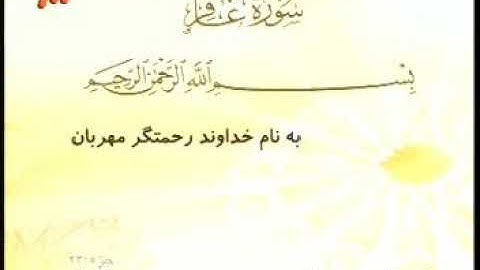 سورة غافر
بسم الله الرحمن الرحيم
به نام خداوند رحمتگر مهربان